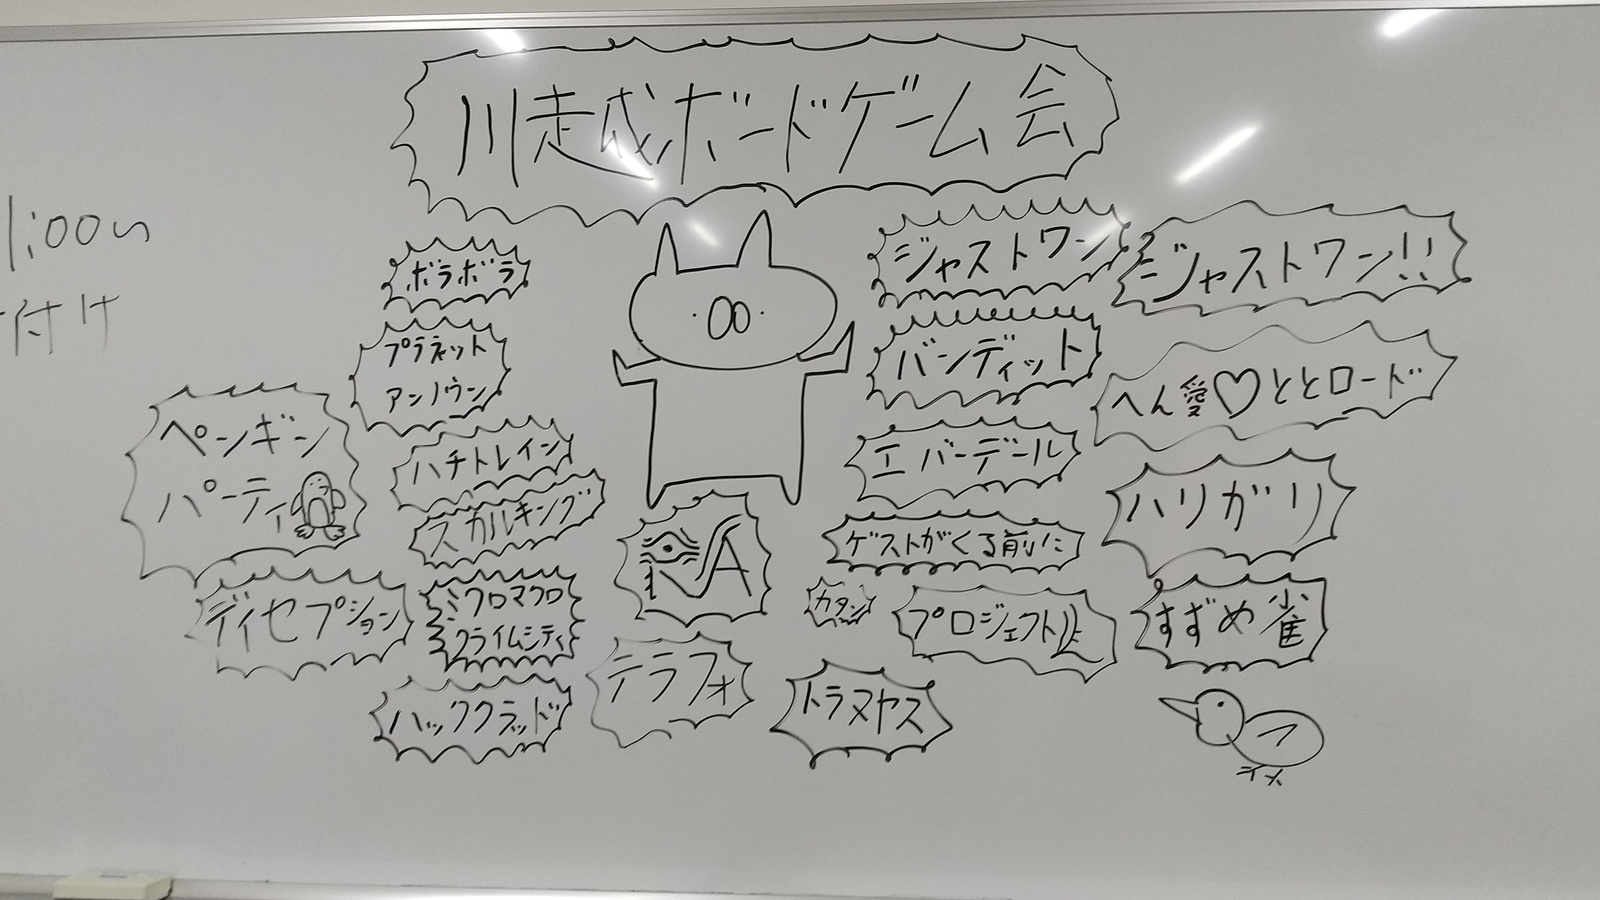 川越ボードゲーム会
1:00〜
付け
ボラボラ
プラネット
アンノウン
ペンギン
パーティ
ハチトレイン
スカルキング
ディセプション
ミクロマクロ
クライムシティ
ハックラッド
RA
テラフォ
トラヌヤス
ジャストワン
ジャストワン!!
バンディット
へん愛♡ととロード
エバーデール
ハリガリ
ゲストがくる前に
カタン
プロジェクトL
すずめ雀